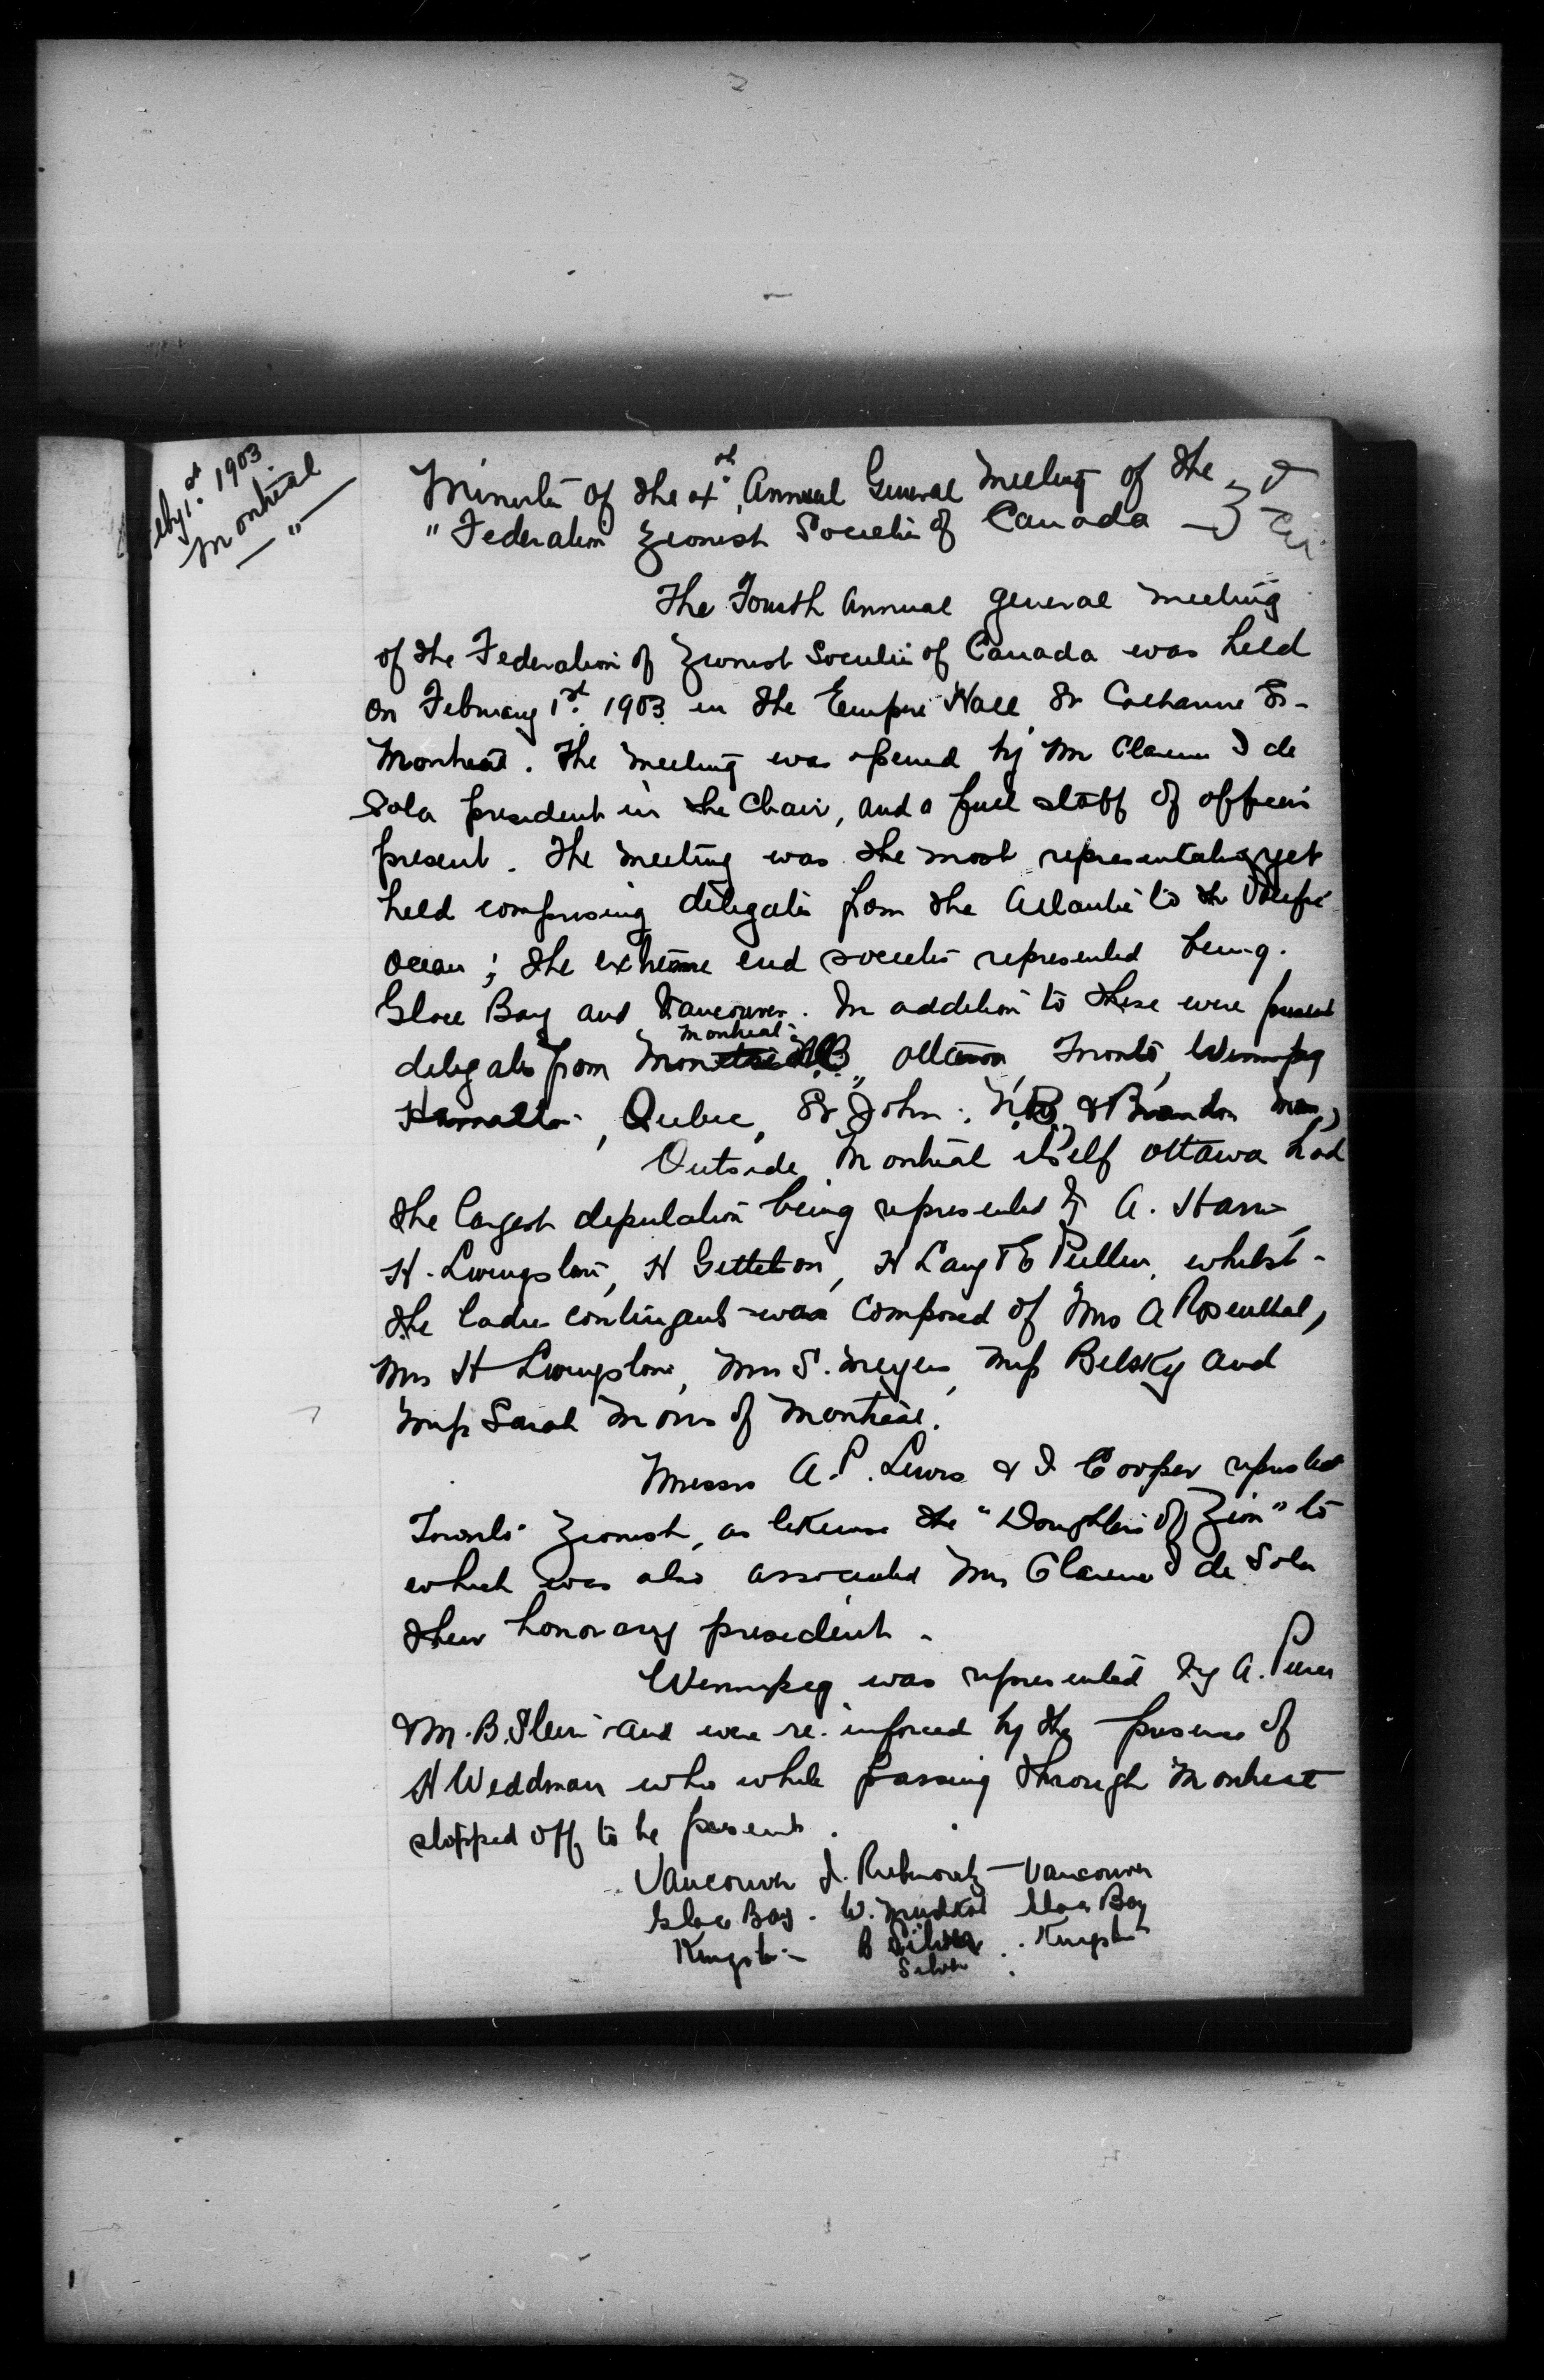 Feby 1st. 1903
Montreal
—"—
Minutes of the 4th. Annual General Meeting of the
"Federation Zionist Societies of Canada
The Fourth Annual general meeting
of the Federation of Zionist Societies of Canada was held
on February 1st. 1903 in the Empire Hall St Catharine St-
Montreal. The meeting was opened by Mr Clarence I de
Sola president in the Chair, and a full staff of officers
present. The meeting was the most representative yet
held comprising delegates from the Atlantic to the Pacific
Ocean; the extreme end societies represented being.
Glace Bay and Vancouver. In addition to these were present
Montreal
delegates from Ottawa, Toronto, Winnipeg
Hamilton, Quebec, St John. N.B., & Brandon Man,
Outside Montreal itself Ottawa had
the largest deputation being represented by A. Harris
H. Livingstone, H Gittleson, H Lang & E Pullen, whilst-
the ladies contingent was composed of Mrs A Rosenthal,
Mrs H Livingstone, Mrs S. Meyers, Miss Belsky and
Miss Sarah Morris of Montreal.
Messrs A.P. Lewis & I Cooper represted
Toronto Zionist, as likewise the "Daughters of Zion" to
which was also associated Mrs Clarence I de Sola
their honorary president.
Winnipeg was represented by A.
& M. B. Stein and were re-inforced by the presence of
H Weddman who while passing through Montreal
stopped off to be present.
Vancouver I. — Vancouver
Glace Bay. W. Glace Bay
Kingston - B Kingston
Silver